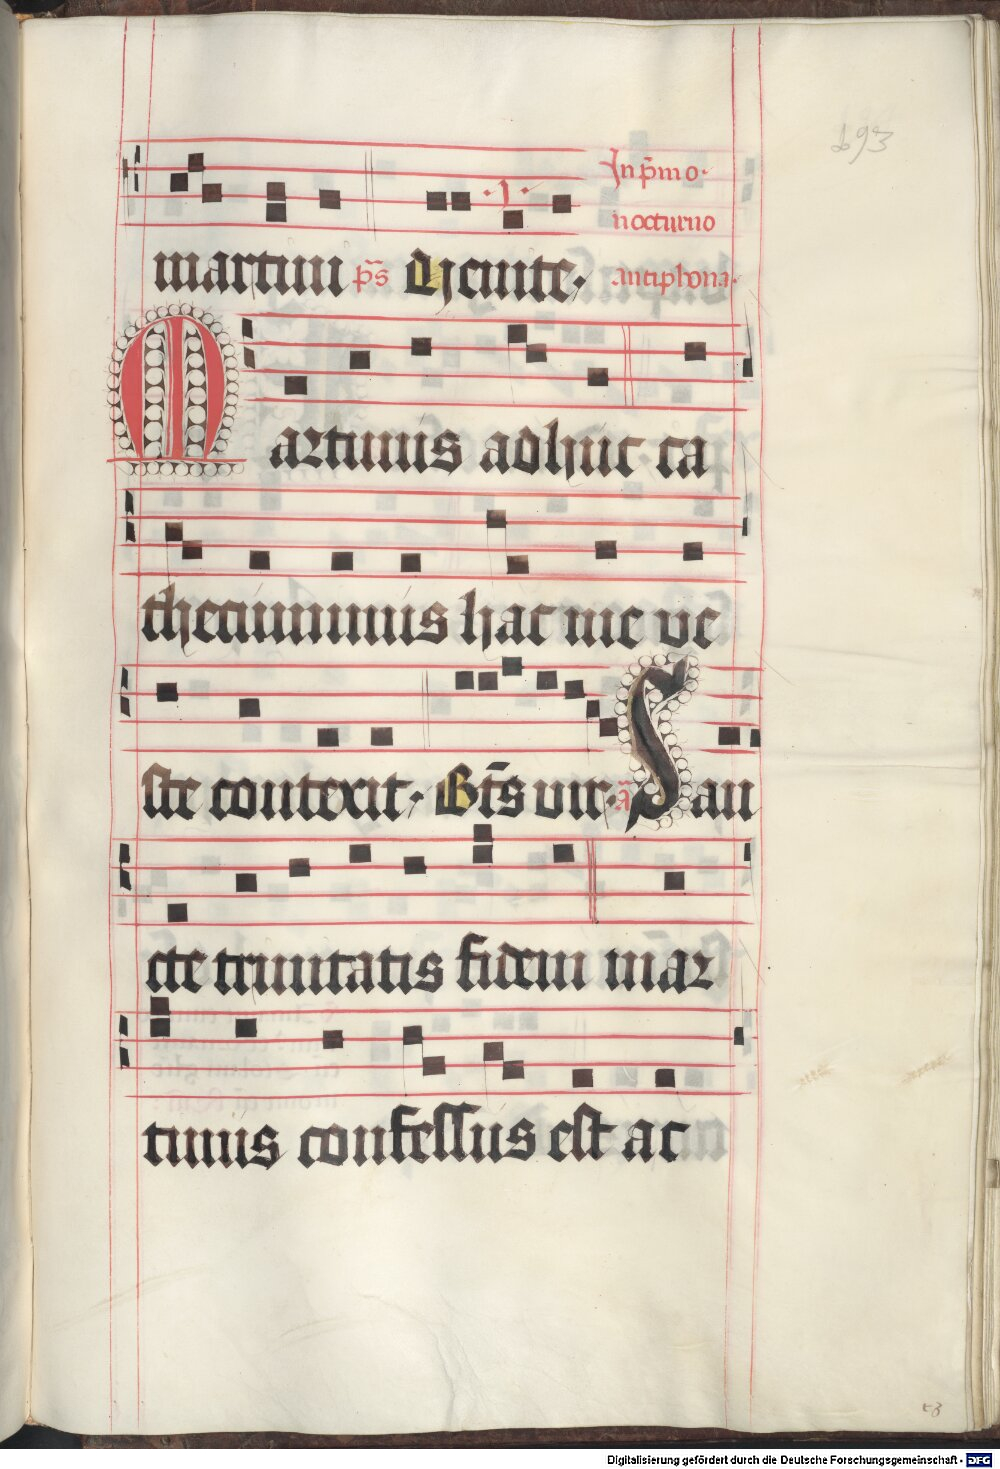 193
In p̄mo.
nocturno
martini p̄s Uenite. antiphona.
Martinus adhuc ca
thecuminus hac me ve
ste contexit. B̄ts vir. ā San
cte trinitatis fidem mar
tinus confessus est ac
53
Digitalisierung gefördert durch die Deutsche Forschungsgemeinschaft - DFG